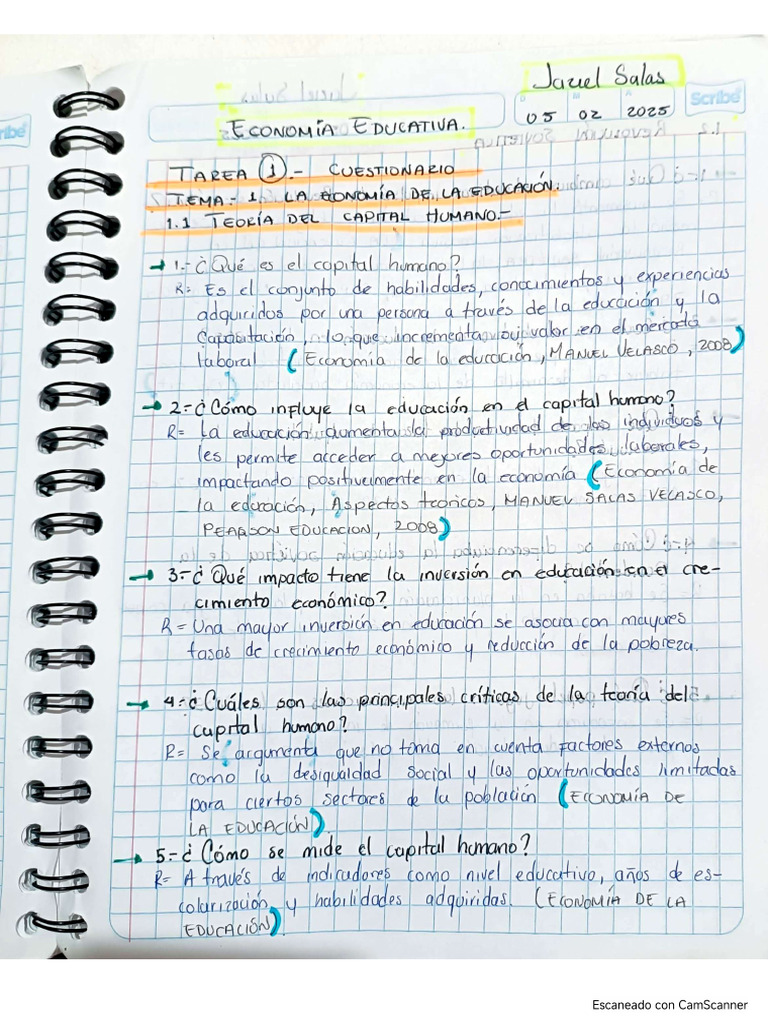 Jaziel Salas
Scribe
05 02 2025
ECONOMÍA EDUCATIVA.
TAREA 1.- CUESTIONARIO
TEMA.- 1. LA ECONOMÍA DE LA EDUCACIÓN.
1.1 TEORÍA DEL CAPITAL HUMANO.-
→ 1.- ¿Qué es el capital humano?
R= Es el conjunto de habilidades, conocimientos y experiencias
adquiridos por una persona a través de la educación y la
capacitación, lo que incrementa su valor en el mercado
laboral (Economía de la educación, MANUEL VELASCO, 2008)
→ 2.- ¿Cómo influye la educación en el capital humano?
R= La educación aumenta la productividad de los individuos y
les permite acceder a mejores oportunidades laborales,
impactando positivamente en la economía (Economía de
la educación, Aspectos teoricos, MANUEL SALAS VELASCO,
PEARSON EDUCACION, 2008)
→ 3.- ¿Qué impacto tiene la inversión en educación en el cre-
cimiento económico?
R= Una mayor inversión en educación se asocia con mayores
tasas de crecimiento económico y reducción de la pobreza.
→ 4.- ¿Cuáles son las principales críticas de la teoría del
capital humano?
R= Se argumenta que no toma en cuenta factores externos
como la desigualdad social y las oportunidades limitadas
para ciertos sectores de la población (ECONOMÍA DE
LA EDUCACIÓN)
→ 5.- ¿Cómo se mide el capital humano?
R= A través de indicadores como nivel educativo, años de es-
colarización y habilidades adquiridas. (ECONOMÍA DE LA
EDUCACIÓN).
Escaneado con CamScanner